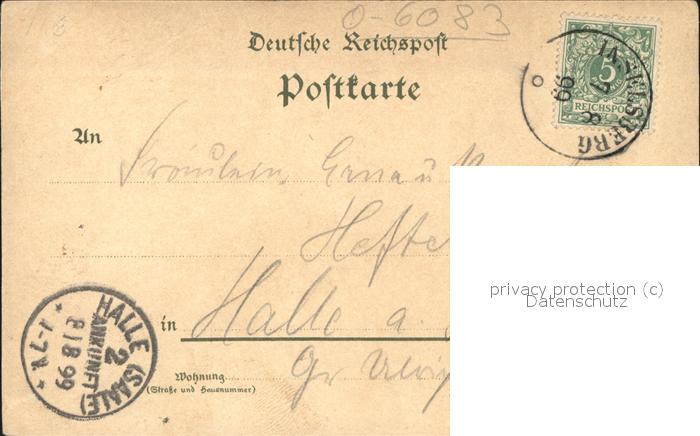 0-6083
Deutsche Reichspost
Postkarte
5
REICHSPOST
INSELSBERG
8
99
An
Fräulein Erna u
Hefte
in Halle a.
Gr Ulri
Wohnung
(Straße und Hausnummer)
HALLE (SAALE)
2
ANKUNFT
8 99
1-7V.
privacy protection (c)
Datenschutz